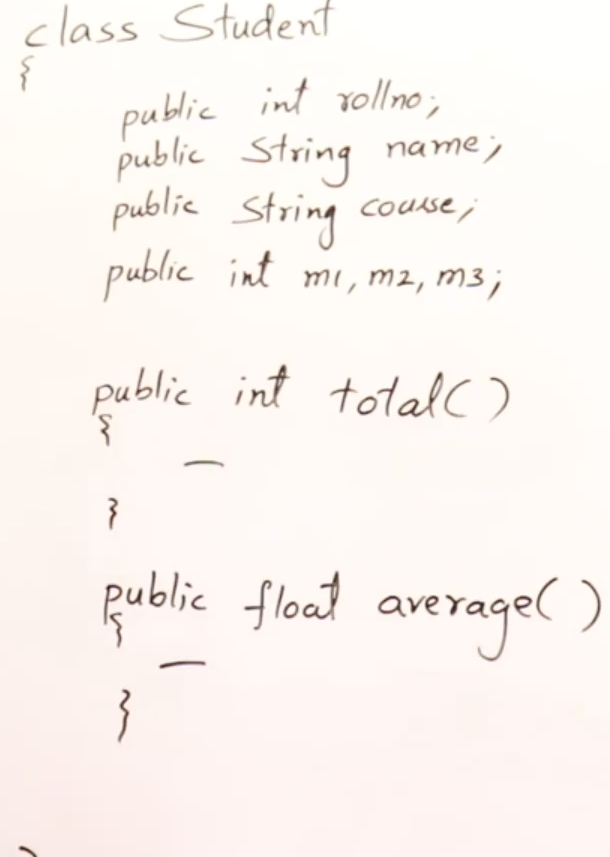 class Student
{
public int rollno;
public String name;
public String course;
public int m1, m2, m3;
public int total()
{
—
}
public float average()
{
—
}